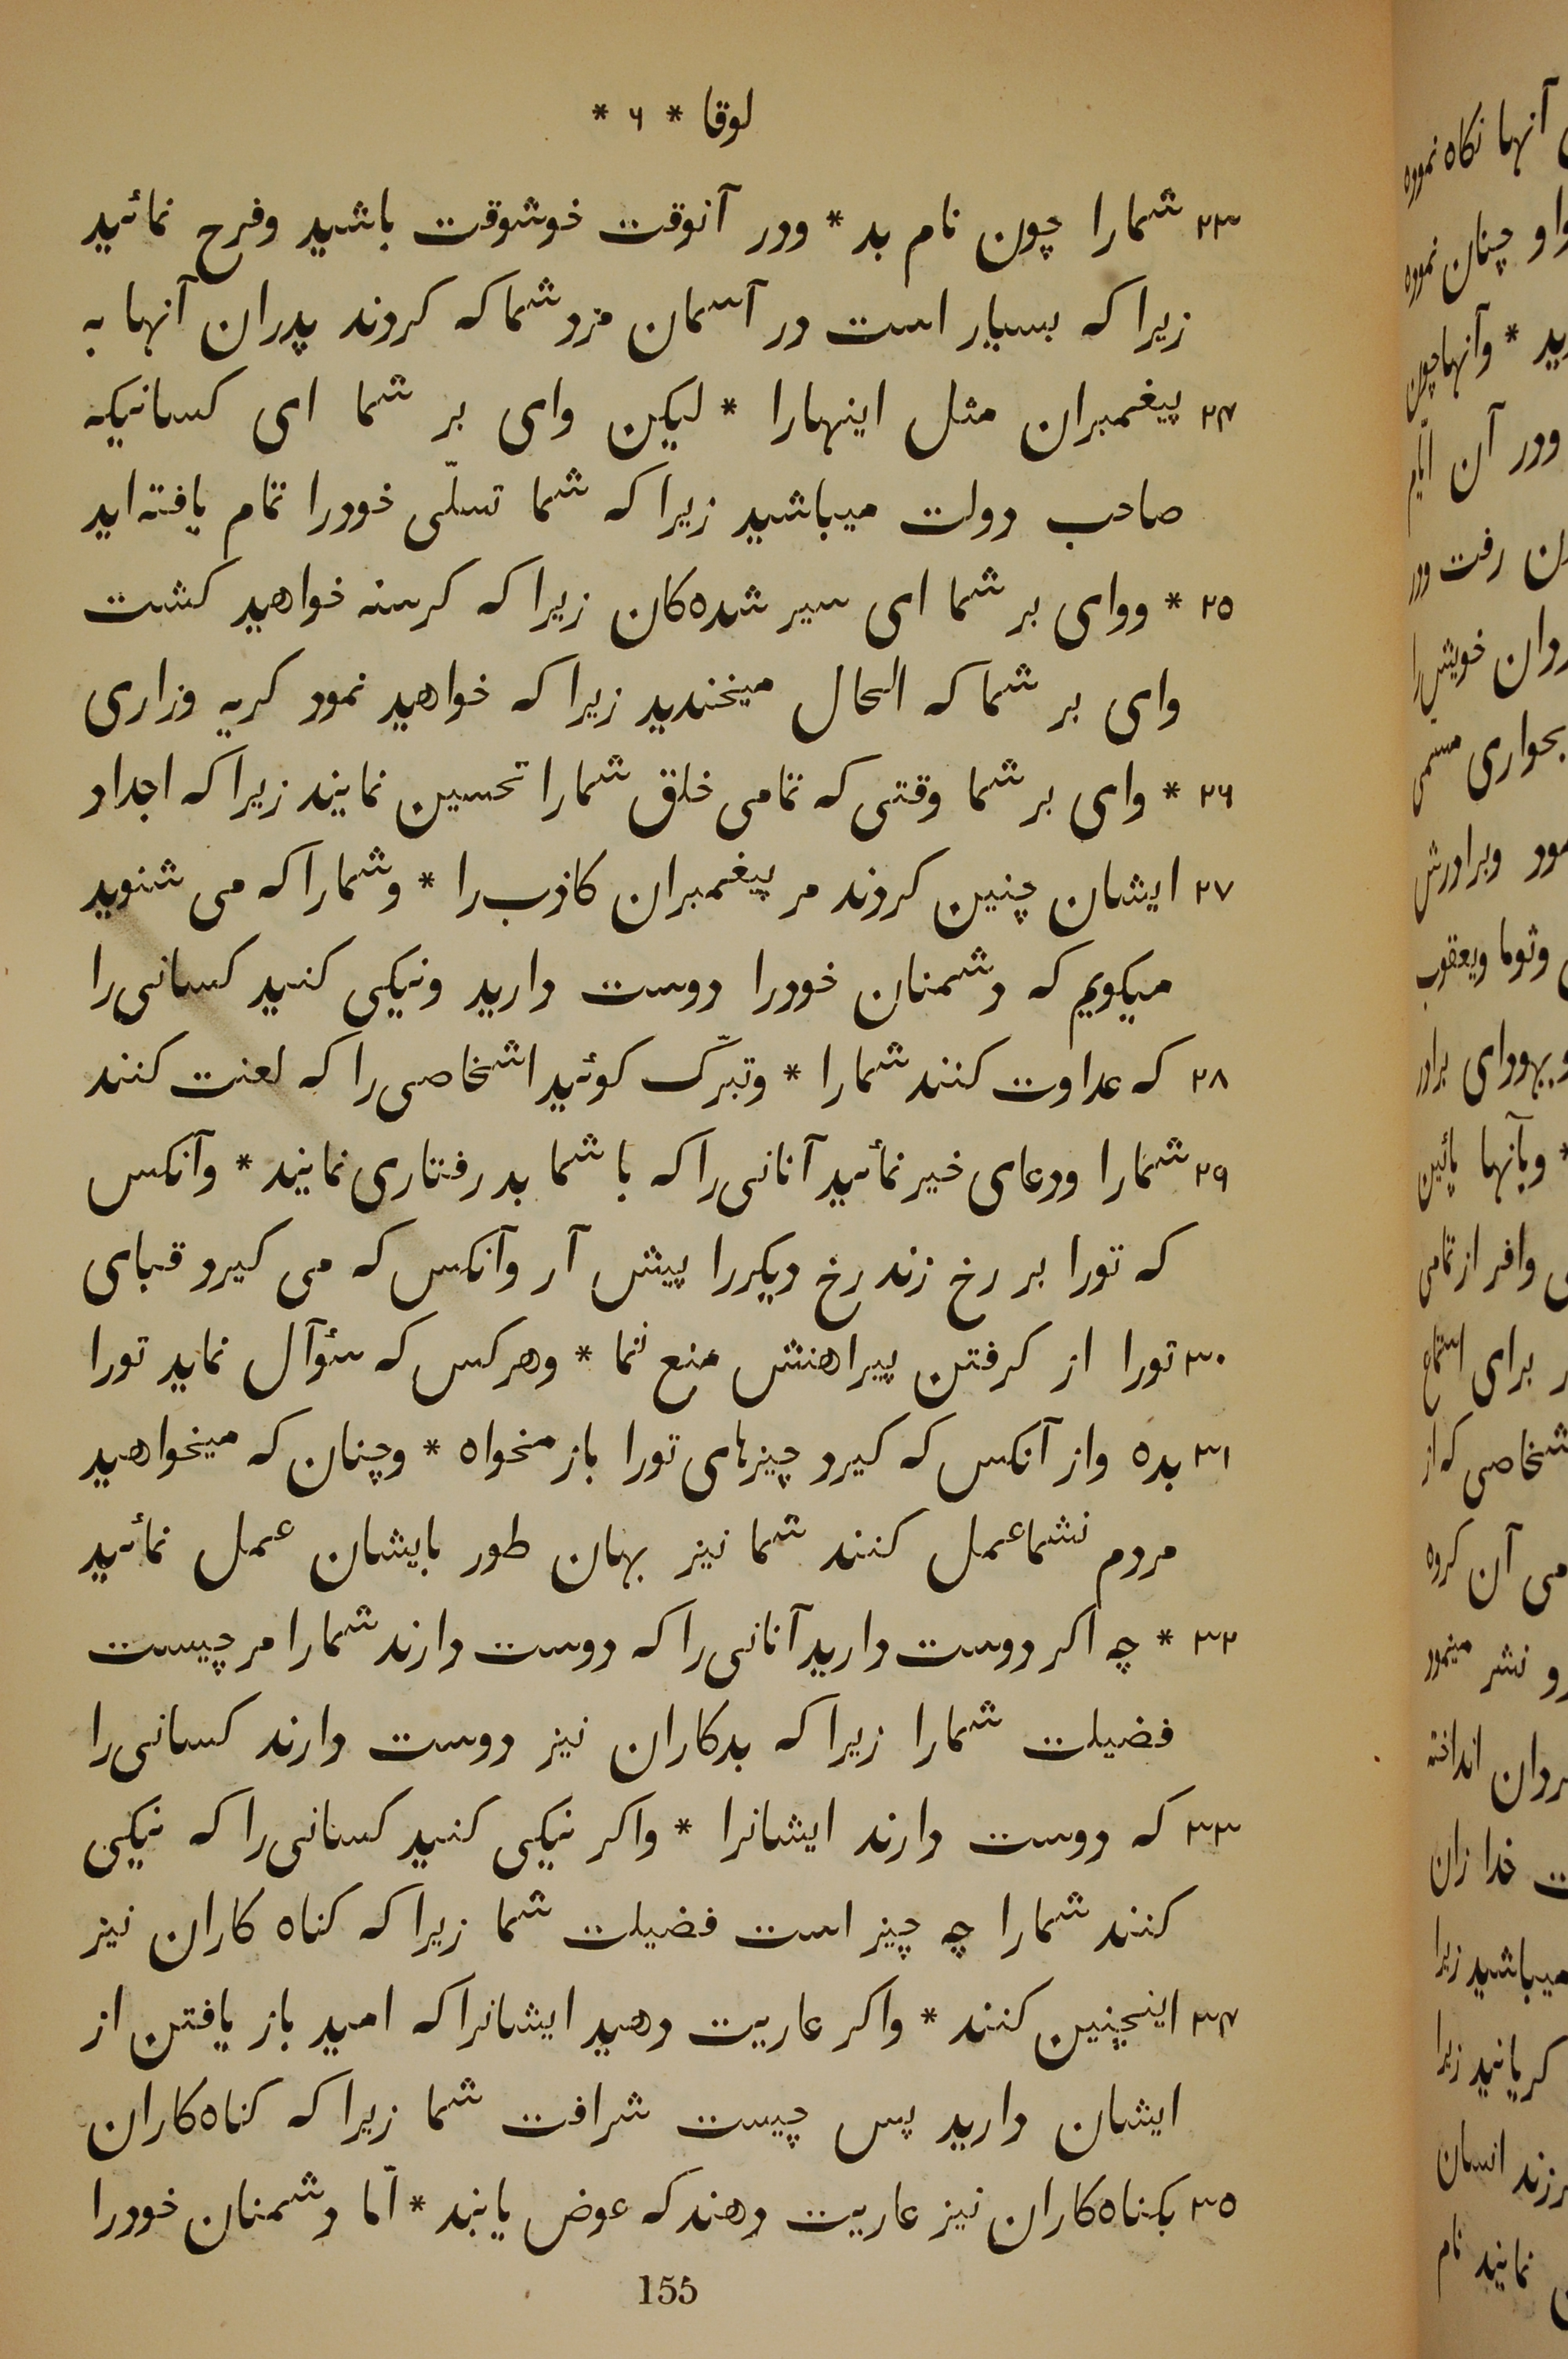 لوقا * ۶ *
۲۳ شمارا چون نام بد * ودر آنوقت خوشوقت باشید وفرح نمائید
زیرا که بسیار است در آسمان مزد شما که کردند پدران آنها به
۲۴ پیغمبران مثل اینهارا * لیکن وای بر شما ای کسانیکه
صاحب دولت میباشید زیرا که شما تسلّی خودرا تمام یافته‌اید
۲۵ * ووای بر شما ای سیر شده‌کان زیرا که کرسنه خواهید کشت
وای بر شما که الحال میخندید زیرا که خواهید نمود کریه وزاری
۲۶ * وای بر شما وقتی که تمامی خلق شمارا تحسین نمایند زیرا که اجداد
۲۷ ایشان چنین کردند مر پیغمبران کاذب‌را * وشمارا که می شنوید
میکویم که دشمنان خودرا دوست دارید ونیکی کنید کسانی‌را
۲۸ که عداوت کنند شمارا * وتبرّک کوئید اشخاصی‌را که لعنت کنند
۲۹ شمارا ودعای خیر نمأئید آنانی‌را که با شما بد رفتاری نمایند * وآنکس
که تورا بر رخ زند رخ دیکررا پیش آر وآنکس که می کیرد قبای
۳۰ تورا از کرفتن پیراهنش منع نما * وهر کس که سؤآل نماید تورا
۳۱ بده واز آنکس که کیرد چیزهای تورا باز مخواه * وچنان که میخواهید
مردم نشما عمل کنند شما نیز بهان طور بایشان عمل نمأئید
۳۲ * چه اکر دوست دارید آنانی‌را که دوست دارند شمارا مر چیست
فضیلت شمارا زیرا که بدکاران نیز دوست دارند کسانی‌را
۳۳ که دوست دارند ایشانرا * واکر نیکی کنید کسانی‌را که نیکی
کنند شمارا چه چیز است فضیلت شما زیرا که کناه کاران نیز
۳۴ اینچنین کنند * واکر عاریت دهید ایشانرا که امید باز یافتن از
ایشان دارید پس چیست شرافت شما زیرا که کناه‌کاران
۳۵ بکناه‌کاران نیز عاریت دهند که عوض یابند * امّا دشمنان خودرا
155
آنها نکاه نموده
او چنان نموده
* وآنهاچون
ودر آن ایّام
رفت ودر
خویش‌را
بحواری مسمی
وبرادرش
وتوما ویعقوب
ویهودای برادر
* وبآنها پائین
وافر از تمامی
برای استماع
که از
آن کروه
نشر مینمود
انداخته
خدا زان
میباشید زیرا
کریانید زیرا
انسان
نمایند نام